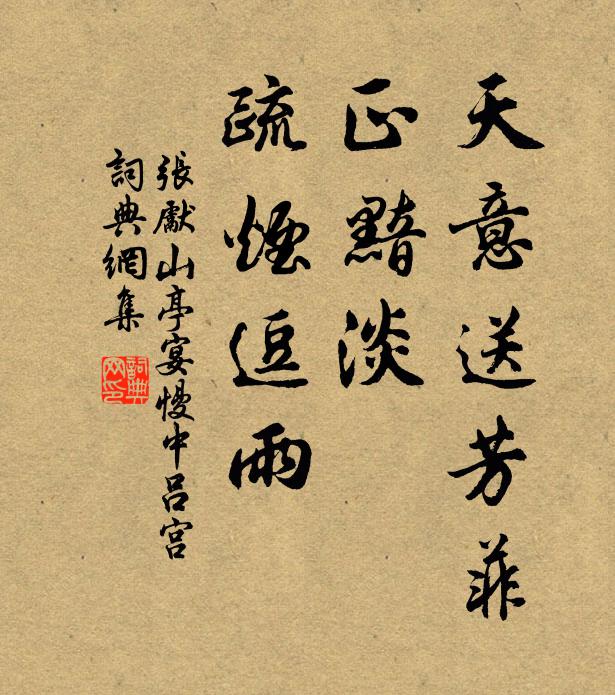 天意送芳菲
正黯淡
疏煙逗雨
張獻山亭宴慢中呂宮
詞典網集
詞典
网印